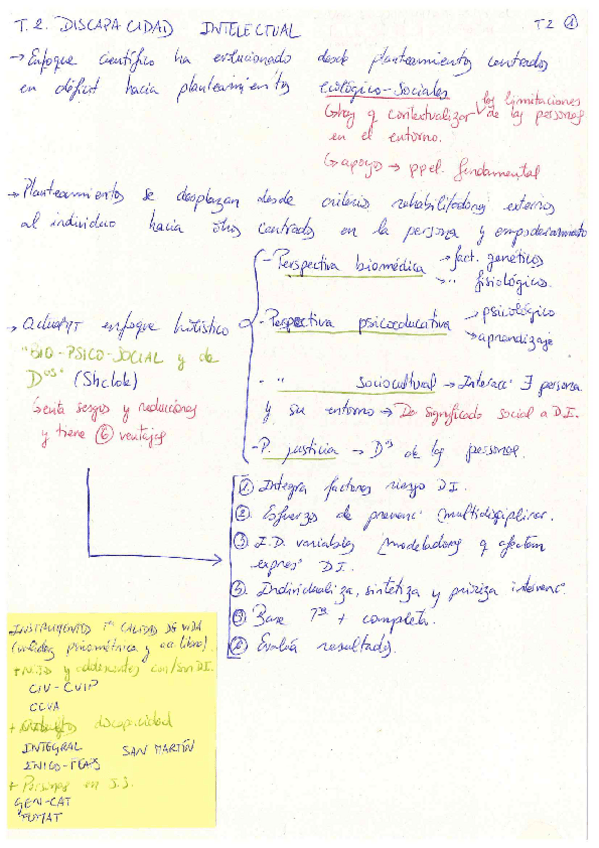 T.2. DISCAPACIDAD INTELECTUAL
T2 ①
→ Enfoque científico ha evolucionado desde planteamientos centrados
en déficit hacia planteamientos ecológico-sociales
↳ hay q contextualizar las limitaciones de las personas
en el entorno.
↳ apoyo → ppel. fundamental
→ Planteamientos se desplazan desde criterios rehabilitadores externos
al individuo hacia otros centrados en la persona y empoderamiento
→ Actualmt enfoque holístico
"BIO-PSICO-SOCIAL y de
Dos" (Shclok)
Evita sesgos y reducciones
y tiene ⑥ ventajas
- Perspectiva biomédica → fact. genéticos
→ " fisiológicos.
- Perspectiva psicoeducativa → psicológico
→ aprendizaje
- " sociocultural → Interacc' ∃ persona
y su entorno → Da significado social a D.I.
- P. justicia → Dos de las personas.
① Integra factores riesgo D.I.
② Esfuerzo de prevenc' multidisciplinar.
③ I.D. variables modeladoras q afectan
expres' D.I.
Individualiza, sintetiza y prioriza intervenc'.
Base + completa.
⑥ Evalúa resultados.
INSTRUMENTOS CALIDAD DE VIDA
(validez psicométrica y acc libre).
+ Niños y adolescentes con/sin D.I.
CIV-CVIP
CCVA
+ discapacidad
INTEGRAL SAN MARTÍN
INICO-FEAPS
+ Personas en S.S.
GEN-CAT
FUMAT